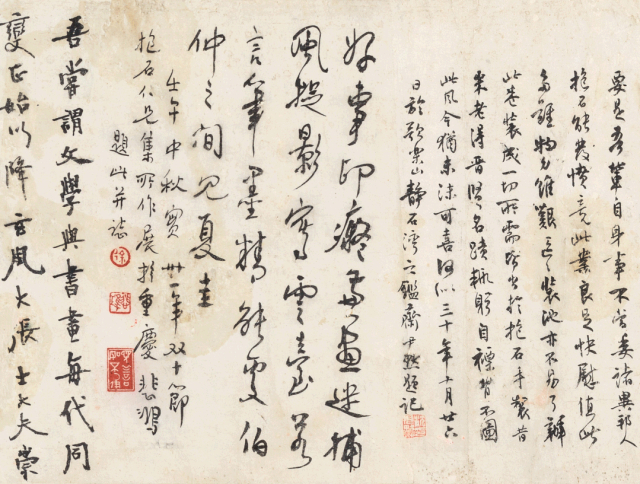 要是吾輩自身事不當委諸異邦人
抱石能發憤竟此業良足快慰值此
多難物力維艱裝池亦不易了辦
此卷裝成一切所需皆出於抱石手製昔
米老得晉賢名蹟輒躬自褾背不圖
此風今猶未沫可喜何似三十年十月廿六
日於歌樂山靜石灣之鑑齋尹默題記
好事即癡畫迷捕
風捉影寫雲臺若
言筆墨精能處伯
仲之間見夏圭
壬午中秋實卅一年双十節
抱石仁兄集所作展於重慶 悲鴻
題此并誌
吾嘗謂文學與書畫每代同
變正始以降玄風大張士大夫崇